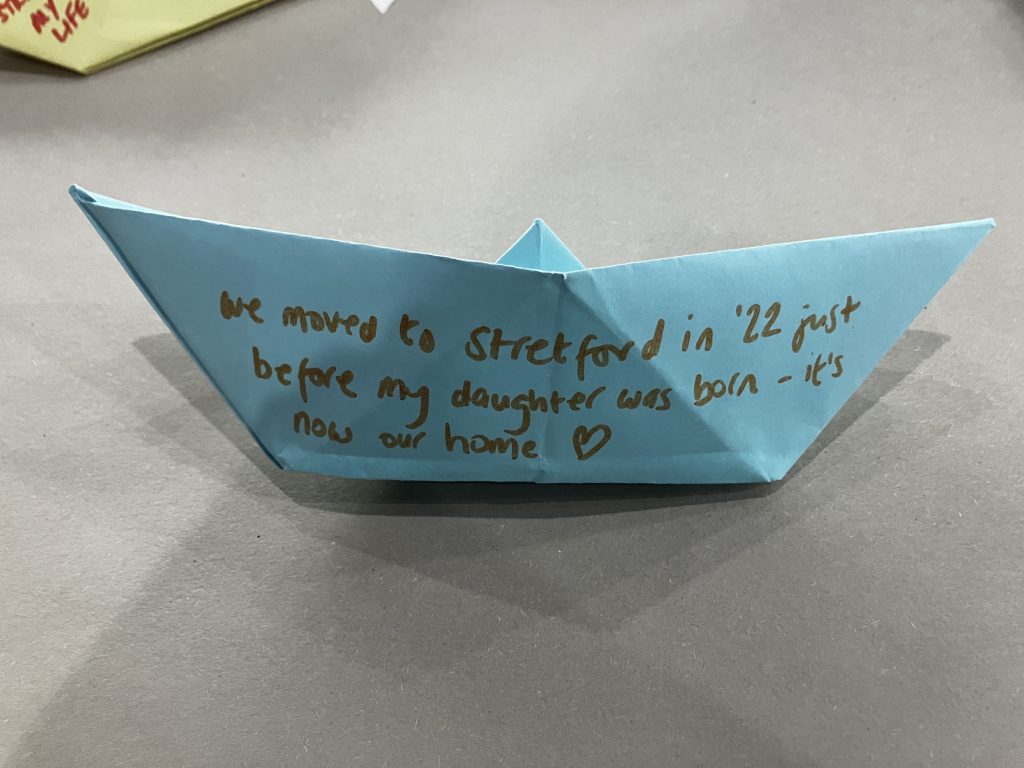 MY
LIFE
We moved to Stretford in '22 just
before my daughter was born – it's
now our home ♡